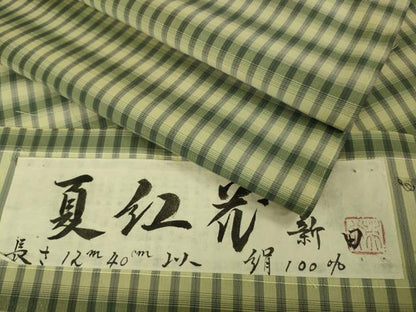 夏紅花 新田
長さ12m40cm以 絹100%